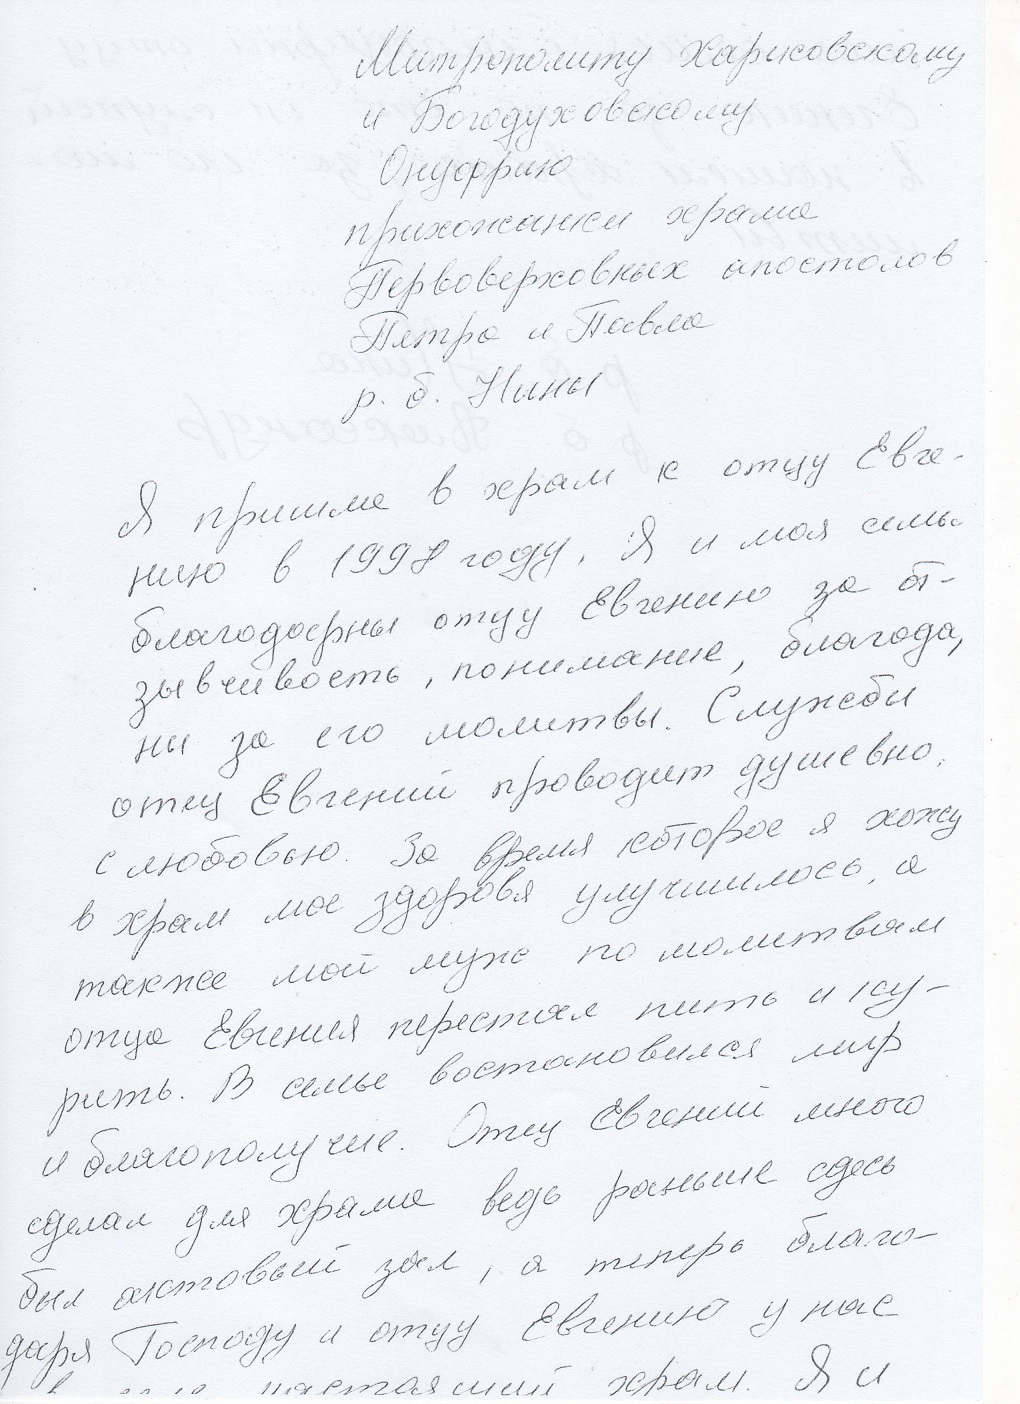 Митрополиту Харковскому
и Богодуховскому
Онуфрию
прихожанки храма
Первоверховных апостолов
Петра и Павла
р. б. Нины
Я пришла в храм к отцу Евге-
нию в 1998 году. Я и моя семья
благодарны отцу Евгению за от-
зывчивость, понимание, благодар,
ны за его молитвы. Службы
отец Евгений проводит душевно,
с любовью. За время которое я хожу
в храм мое здоровя улучшилось, а
также мой муж по молитвам
отца Евгения перестал пить и ку-
рить. В семье востановился мир
и благополучие. Отец Евгений много
сделал для храма ведь раньше сдесь
был актовый зал, а теперь благо-
даря Господу и отцу Евгению у нас
настоящий храм. Я и